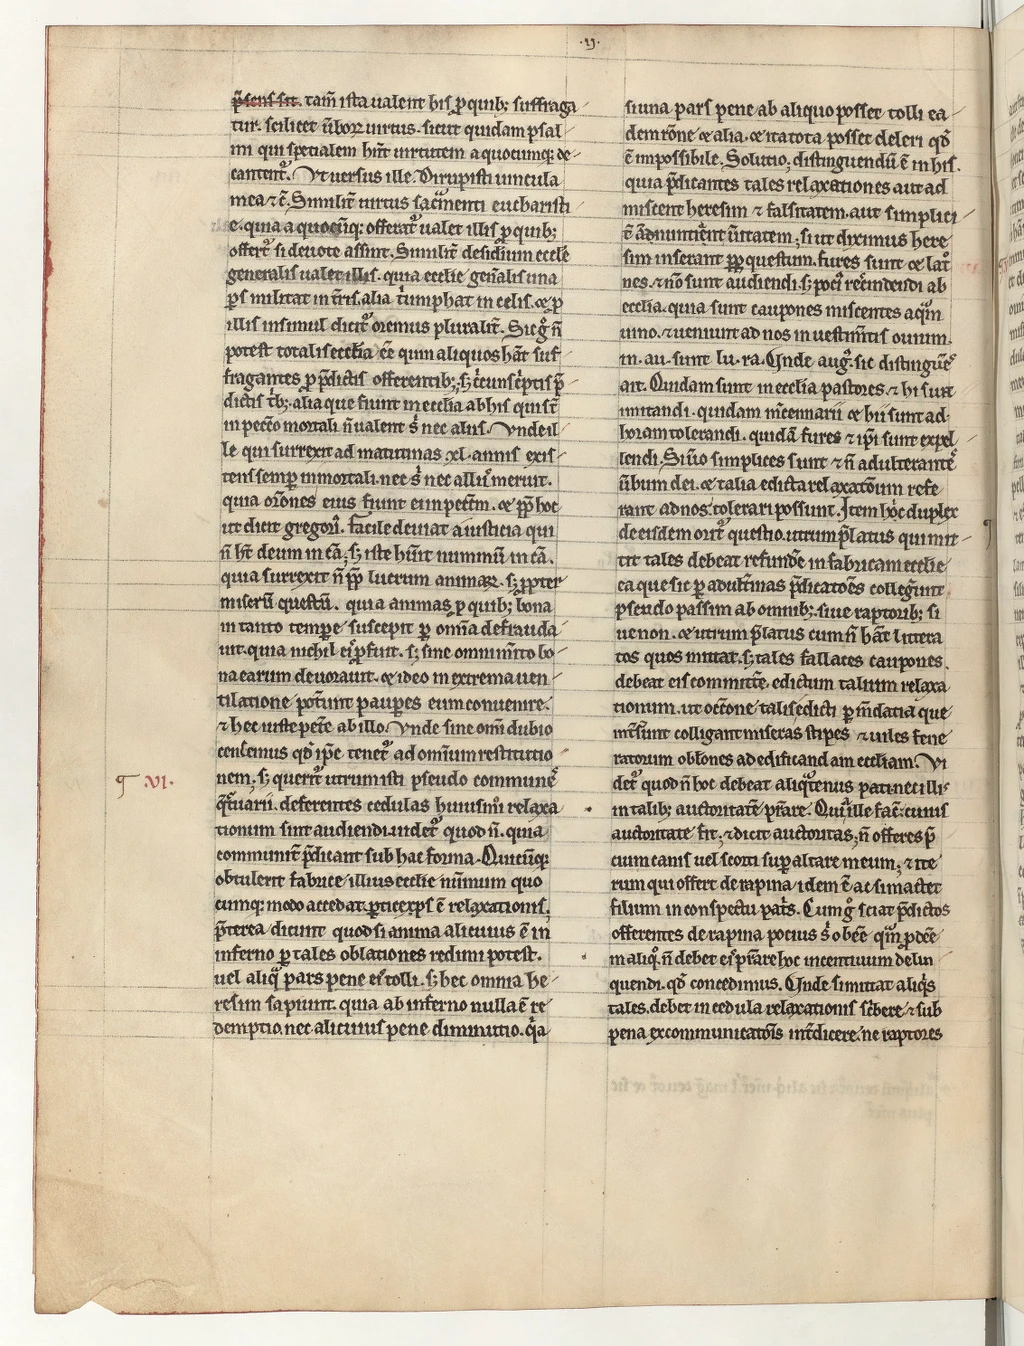 ·ıȷ·
p̄sens sit. tam̄ ista ualent his ꝓ quib; suffraga
tur. scilicet ūboꝝ uirtus. sicut quidam psal
mi qui specialem hn̄t uirtutem a quocumq; de
cantent᷑. Vt uersus ille. Dirupisti uincula
mea ⁊ c̄. Similit̄ uirtus sac̄menti eucharisti
e. quia a quocūq; offerat᷑ ualet illis ꝓ quib;
offert᷑ si deuote assint. Similit̄ desid̄ium eccl̄e
generalis ualet illis. quia ecclie gen̄alis una
ꝑs militat in t̄ris. alia t̄umphat in celis. ⁊ ꝓ
illis insimul dicit᷑ oremus pluralit̄. Sic g̊ n̄
potest totalis ecclīa eē quin aliquos hāt suf
fragantes ꝓ p̄dictis offerentib;. s; c̄cunsc̄ptis p̄
dictis t̄b;. alia que fiunt in ecclīa ab his qui st̄
in pecc̄o mortali n̄ ualent s̄ nec aliis. Vnde il
le qui surrexit ad matutinas .xl. annis exis
tens semꝑ in mortali. nec s̄ nec alīi meruit.
quia or̄ones eius fiunt ei in pecc̄m. ⁊ ꝓp̄ hoc
ut dicit gregori᷒. facile deuiat a iusticia qui
n̄ ht̄ deum in cā. s; iste hūit nummū in cā.
quia surrexit n̄ ꝓp̄ lucrum animaꝝ. s; ꝓpter
miserū questū. quia animas ꝓ quib; bona
in tanto tempe suscepit ꝑ om̄ia defrauda
uit. quia nichil eis ꝓfuit. s; sine omni m̄ito bo
na earum deuorauit. ⁊ ideo in extrema uen
tilatione pot̄unt pauꝑes eum conuenire.
⁊ hec iuste pet̄e ab illo. Vnde sine om̄i dubio
censemus qđ ip̄e tenet᷑ ad omnium restitutio
nem. s; querit᷑ utrum isti pseudo commune᷒
¶ .VI.
q̄stuarii. deferentes cedulas huiusm̄i relaxa
tionum sint audiendi. uidet᷑ quod n̄. quia
communit̄ p̄dicant sub hac forma. Quicūq;
obtulerit fabrice illius ecclie nūmum quo
cumq; modo accedat. ꝑticeps ē relaxationis.
p̄terea dicunt quod si anima alicuius ē in
inferno ꝑ tales oblationes redimi potest.
uel aliq̄ pars pene ei᷒ tolli. s; hec omnia he
resim sapiunt. quia ab inferno nulla ē re
demptio. nec alicuius pene diminutio. q̄a
si una pars pene ab aliquo posset tolli ea
dem rōne ⁊ alia. ⁊ ita tota posset deleri qđ
ē impossibile. Solutio. distinguendū ē in his.
quia p̄dicantes tales relaxationes aut ad
miscent heresim ⁊ falsitatem. aut simplici
t̄ adnuntient ūitatem. si ut diximus here
sim inserant ꝓp̄ questum. fures sunt ⁊ lat᷑
nes. ⁊ nō sunt audiendi. s; poci᷒ rec̄indendi ab
ecclīa. quia sunt caupones miscentes aq̄m
uino. ⁊ ueniunt ad nos in uestimn̄tis ouium.
in. au. sunt lu. ra. Vnde aug᷒. sic distingue᷒
ait. Quidam sunt in ecclīa pastores. ⁊ hi sunt
imitandi. quidam m̄cennarii ⁊ hii sunt ad
horam tolerandi. quidā fures ⁊ ip̄i sunt expel
lendi. Si ū̊o simplices sunt ⁊ n̄ adulterante᷒
ūbum dei. ⁊ talia edicta relaxatōum refe
rant ad nos. tolerari possunt. Item h̊c duplex
de eisdem orit᷑ questio. utrum p̄latus qui mit
tit tales debeat refundēe in fabricam ecclie
ea que sic ꝑ adult̄inas p̄dicatōes colleḡint
pseudo passim ab omnib;. siue raptorib; si
ue non. ⁊ utrum p̄latus cum n̄ hāt littera
tos quos mittat. s; tales fallaces caupones.
debeat eis committ̄e. edictum talium relaxa
tionum. ut oct̄one talis edicti ꝑ mēdatia que
m̄t̄sunt colligant miseras stipes ⁊ uiles fene
ratorum oblōnes ad edificandam eccliam. Vi
det᷑ quod n̄ hoc debeat aliq̄tenus pati. nec illi᷒
in talib; auctoritatē p̄stare. Qui ille fac̄. cuius
auctoritate fit. ⁊ dicit auctoritas. n̄ offeres p̄
cium canis uel scorti suꝑ altare meum. ⁊ ite
rum qui offert de rapina idem ē ac si mactet
filium in conspectu patis. Cum g̊ sciat p̄dictos
offerentes de rapina pocius s̄ obēe q̄m ꝓdēe
in aliq̊. n̄ debet eis p̄stare hoc incentiuum delin
quendi. qđ concedimus. Vnde si mittat aliq̊s
tales. debet in cedula relaxationis sc̄bere. ⁊ sub
pena excommunicatōis int̄dicere. ne raptores